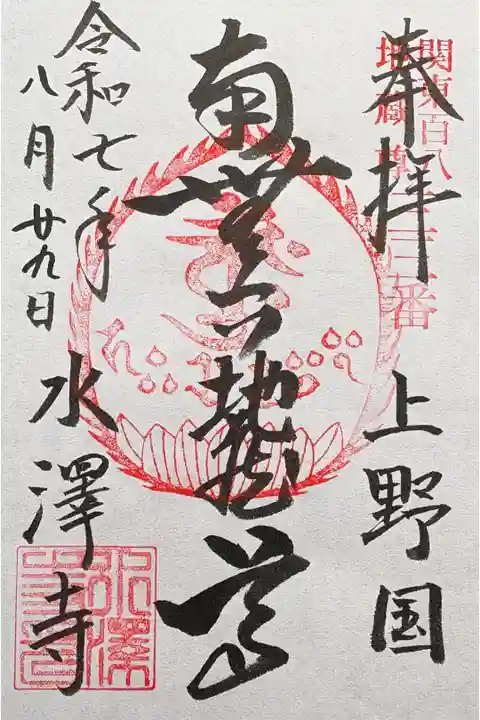 奉拝 上野国
関東百八
地蔵尊二三番
南無六地蔵尊
令和七年
八月廿九日
水澤寺
水澤
寺印